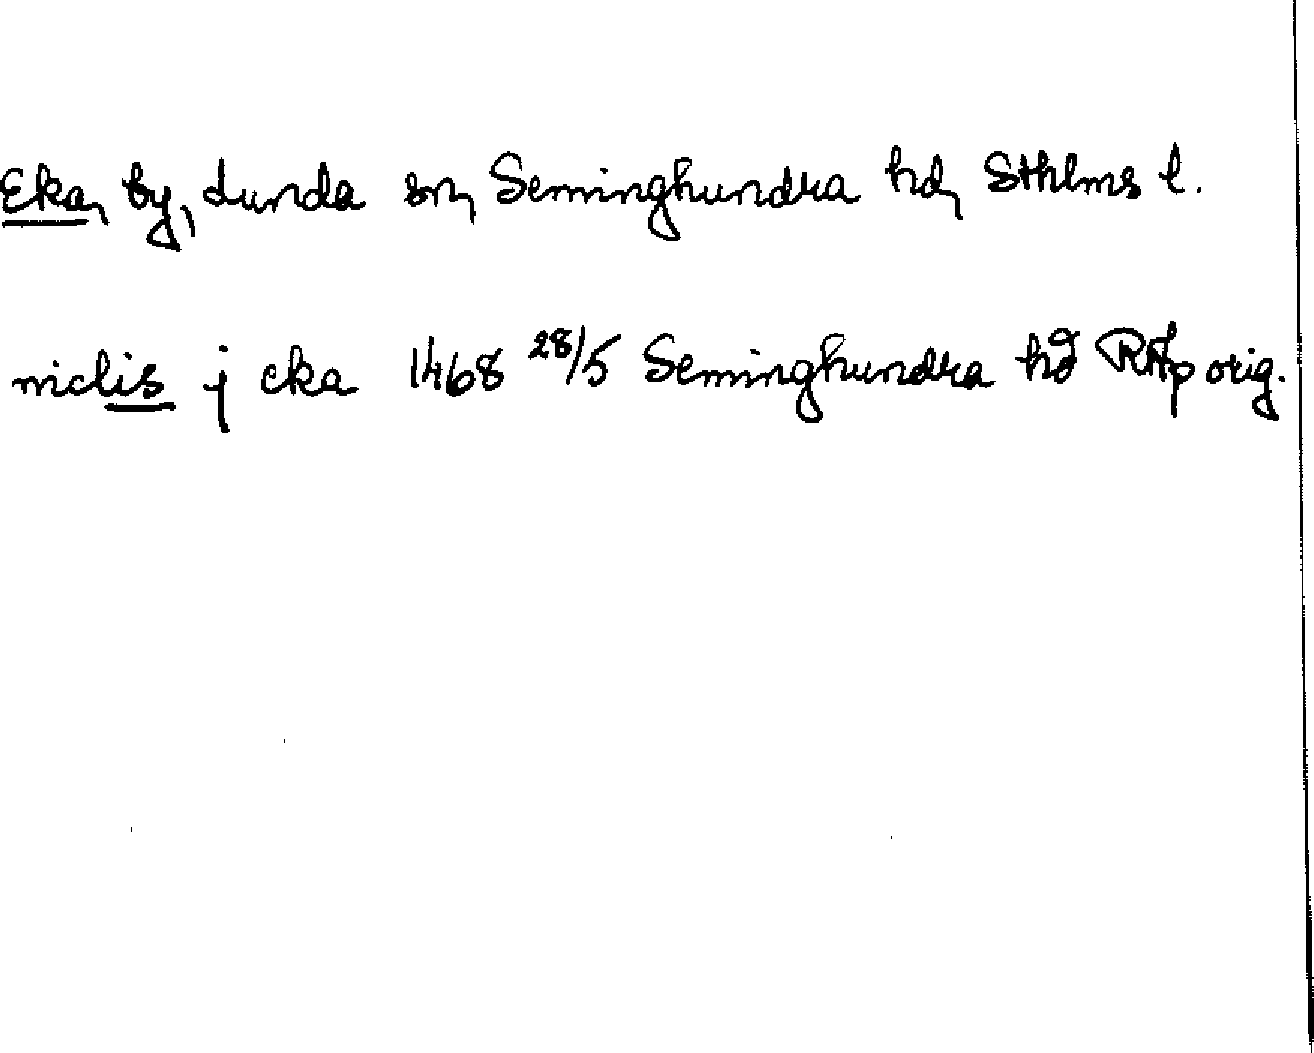 Eka, by, Lunda sn, Seminghundra hd, Sthlms l.
niclis j eka 1468 28/5 Seminghundra hd RAp orig.